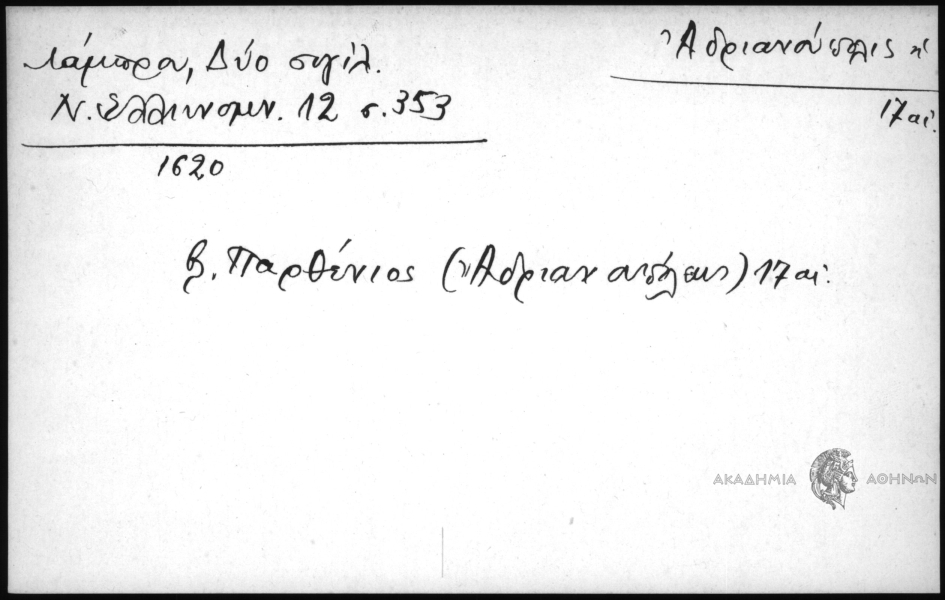 Λάμπρου, Δύο σιγίλ.
Ν. Ελληνομν. 12 σ. 353
1620
Ἀδριανούπολις ἡ
17 αἰ.
βλ. Παρθένιος (Ἀδριανουπόλεως) 17 αἰ.
ΑΚΑΔΗΜΙΑ ΑΘΗΝΩΝ